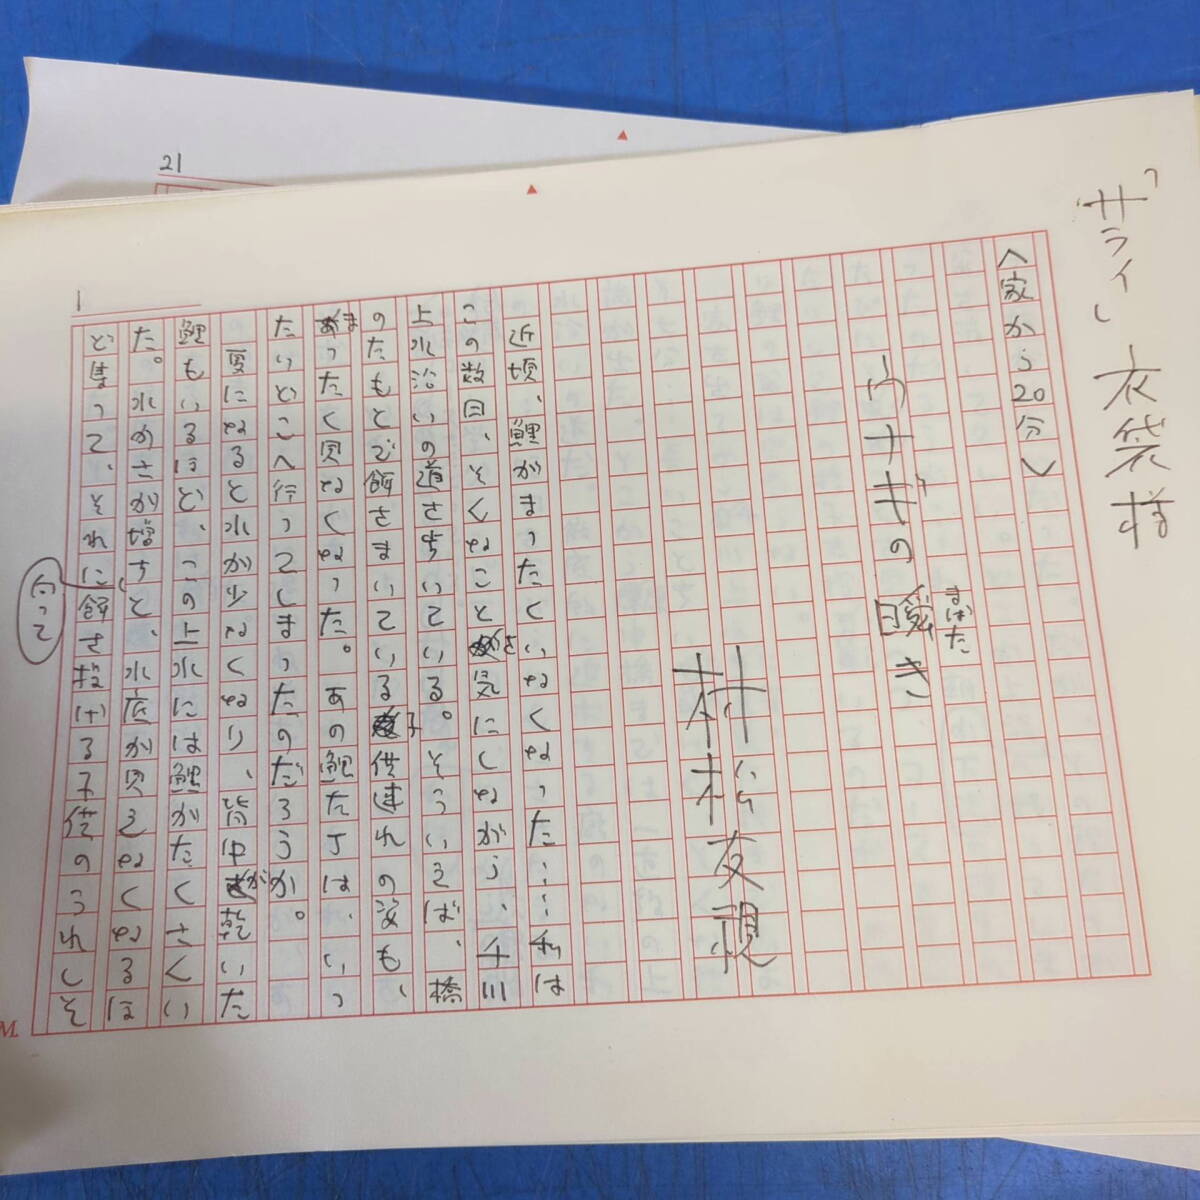 『サライ』衣袋様
〈家から20分〉
ウナギの瞬き
まばた
村松友視
近頃、鯉がまったくいなくなった……私は
この数日、そんなことを気にしながら、千川
上水沿いの道を歩いている。そういえば、橋
のたもとで餌をまいている子供連れの姿も、
まったく見なくなった。あの鯉たちは、いっ
たいどこへ行ってしまったのだろうか。
夏になると水が少なくなり、背中が乾いた
鯉もいるほど、この上水には鯉がたくさんい
た。水かさが増すと、水底が見えなくなるほ
ど集って、それに向って餌を投げる子供のうれしそ
1
21
M.